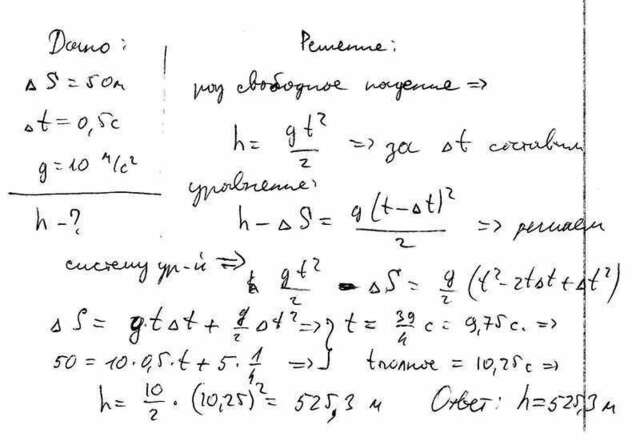 Дано: Решение:
ΔS = 50м род свободное падение =>
Δt = 0,5с
g = 10 м/с² h = gt²/2 => за Δt составим
уравнение:
h - ? h - ΔS = g(t-Δt)²/2 => решаем
систему ур-й => gt²/2 - ΔS = g/2 (t² - 2tΔt + Δt²)
ΔS = g·tΔt + g/2 Δt² => } t = 39/4 с = 9,75с. =>
50 = 10·0,5·t + 5·1/4 => } tполное = 10,25с =>
h = 10/2 · (10,25)² = 525,3 м Ответ: h = 525,3 м